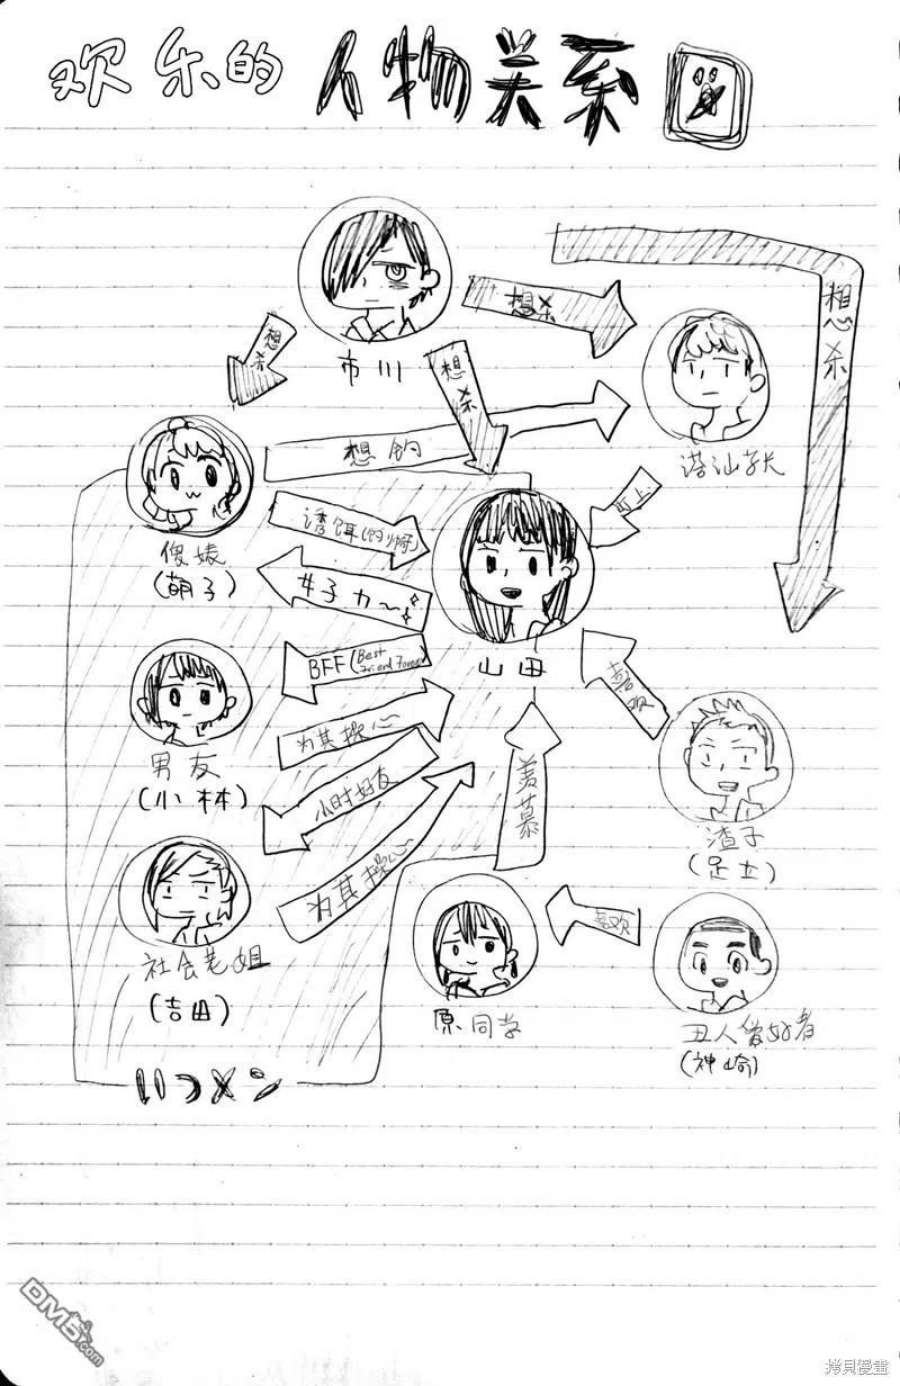 欢乐的人物关系図
想杀
想杀
想杀
想杀
市川
搭讪学长
想钓
诱饵(的啊)
傻婊
(萌子)
サ子カ～
盯上
山田
BFF(Best
Friend Forever
男友
(小林)
为其操心
小时好友
为其操心
羡慕
渣子
(足立)
社会老姐
(吉田)
原同学
喜欢
丑人爱好者
(神崎)
いつメン
DM5.com
拷貝漫畫